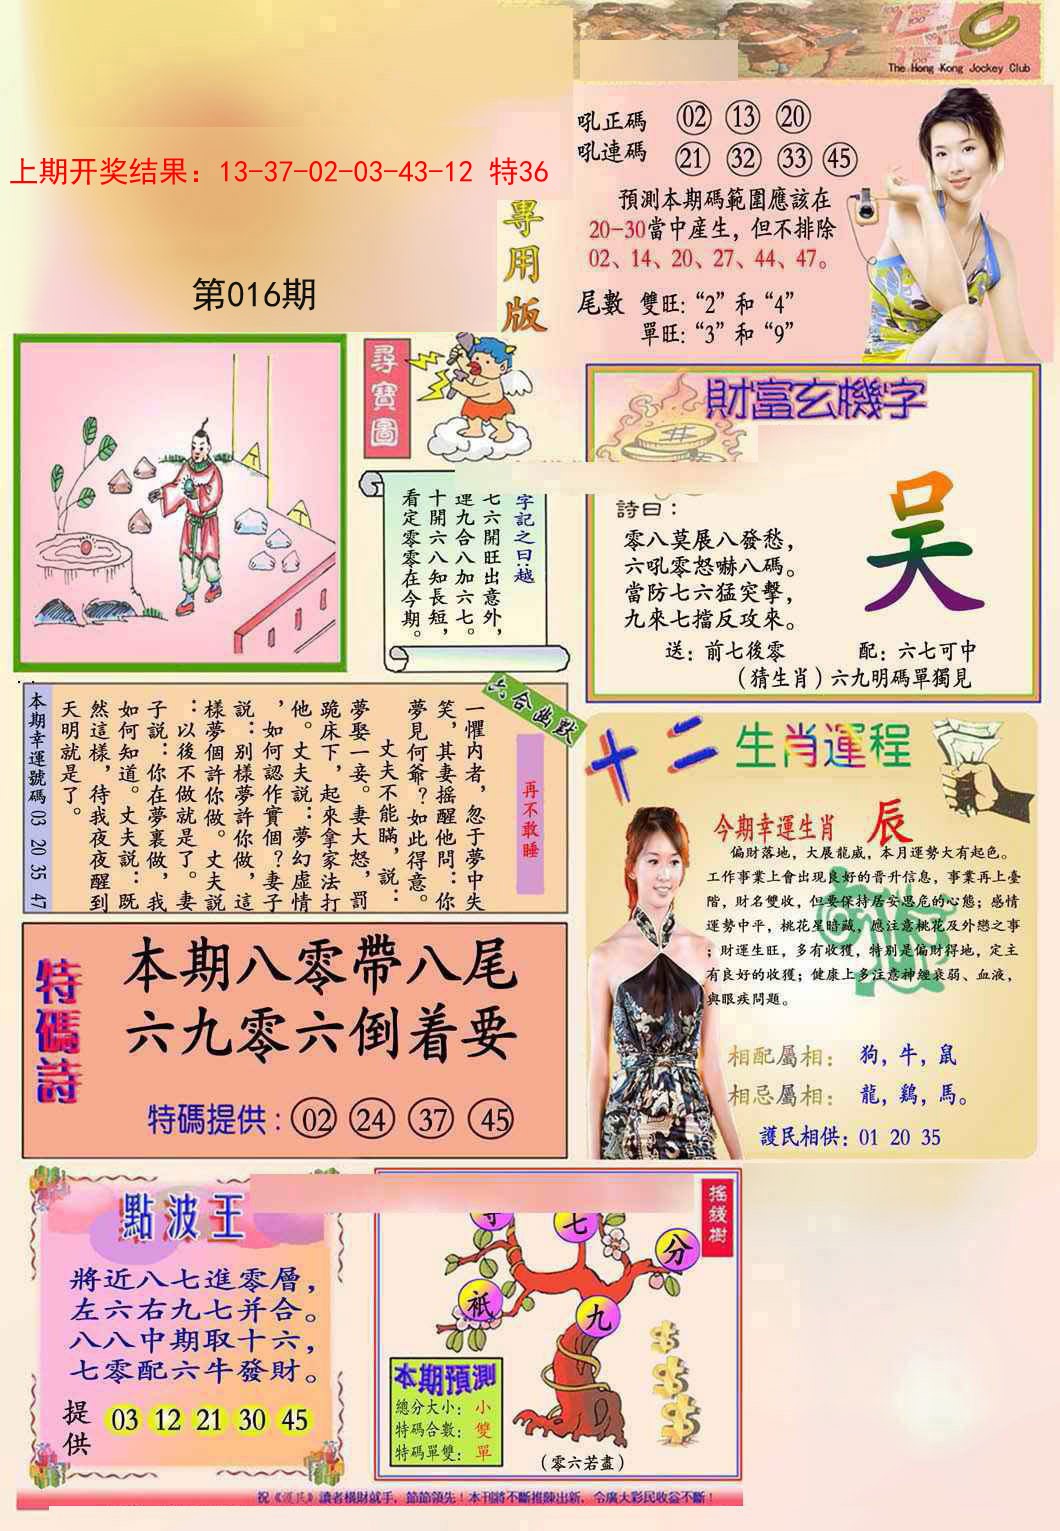 The Hong Kong Jockey Club
吼正碼 02 13 20
吼連碼 21 32 33 45
預測本期碼範圍應該在
20-30當中産生，但不排除
02、14、20、27、44、47。
尾數 雙旺:“2”和“4”
單旺:“3”和“9”
上期开奖结果：13-37-02-03-43-12 特36
第016期
專用版
尋寶圖
字記之曰:越
七六開旺出意外，
連九合八加六七。
十開六八知長短，
看定零零在今期。
財富玄機字
詩曰：
零八莫展八發愁，
六吼零怒嚇八碼。
當防七六猛突擊，
九來七擋反攻來。
吴
送：前七後零 配：六七可中
（猜生肖）六九明碼單獨見
六合幽默
再不敢睡
一懼内者，忽于夢中失
笑，其妻摇醒他問：你
夢見何爺？如此得意。
丈夫不能瞞，説：
夢娶一妾。妻大怒，罰
跪床下，起來拿家法打
他。丈夫説：夢幻虚情
，如何認作實個？妻子
説：别樣夢許你做，這
樣夢個許你做。丈夫説
：以後不做就是了。妻
子説：你在夢裏做，我
如何知道。丈夫説：既
然這樣，待我夜夜醒到
天明就是了。
本期幸運號碼 03 20 35 47
十二生肖運程
今期幸運生肖 辰
偏財落地，大展龍威，本月運勢大有起色。
工作事業上會出現良好的晉升信息，事業再上臺
階，財名雙收，但要保持居安思危的心態；感情
運勢中平，桃花星暗藏，應注意桃花及外戀之事
；財運生旺，多有收獲，特别是偏財得地，定主
有良好的收獲；健康上多注意神經衰弱、血液，
與眼疾問題。
相配屬相： 狗，牛，鼠
相忌屬相： 龍，鷄，馬。
護民相供：01 20 35
特碼詩
本期八零帶八尾
六九零六倒着要
特碼提供：02 24 37 45
點波王
將近八七進零層，
左六右九七并合。
八八中期取十六，
七零配六牛發財。
提供 03 12 21 30 45
摇錢樹
七
分
八
祇
九
本期預測
總分大小：小
特碼合數：雙
特碼單雙：單
（零六若盡）
祝《護民》讀者横財就手，節節領先！本刊將不斷推陳出新，令廣大彩民收益不斷！